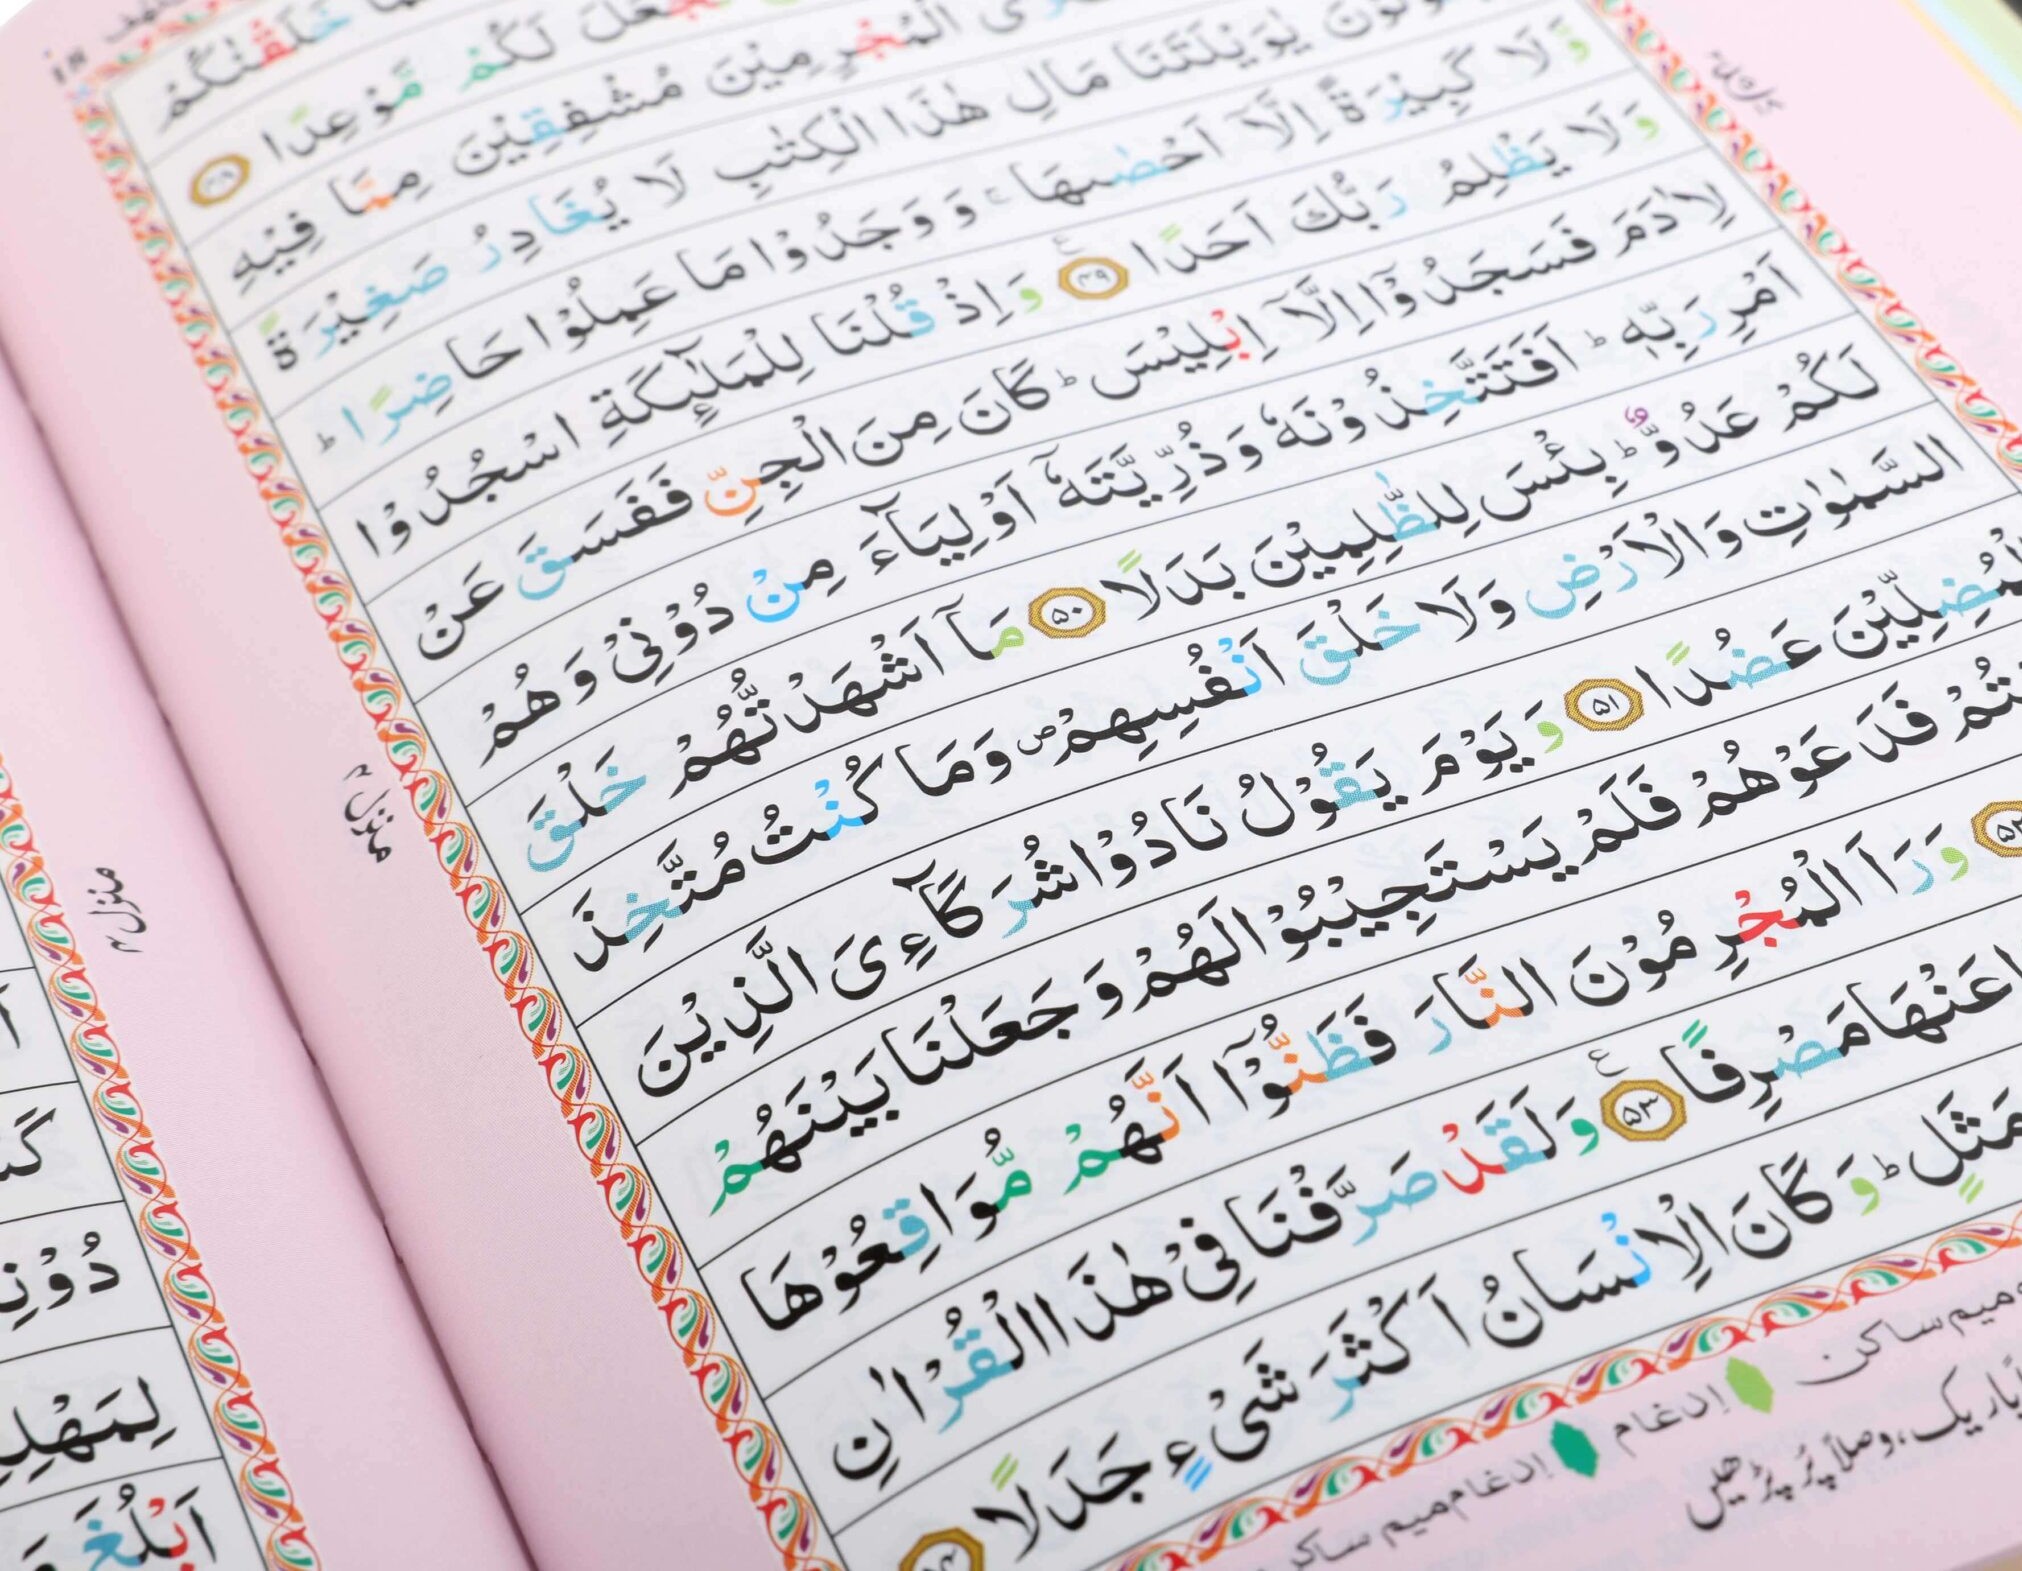 خَلَقْنٰكُمْ
لَكُمْ مَّوْعِدًا ﴿۴۸﴾
الْمُجْرِمِيْنَ مُشْفِقِيْنَ مِمَّا فِيْهِ
يٰوَيْلَتَنَا مَالِ هٰذَا الْكِتٰبِ لَا يُغَادِرُ صَغِيْرَةً
وَّلَا كَبِيْرَةً اِلَّاۤ اَحْصٰىهَا ۚ وَوَجَدُوْا مَا عَمِلُوْا حَاضِرًا ؕ
وَلَا يَظْلِمُ رَبُّكَ اَحَدًا ﴿۴۹﴾ وَاِذْ قُلْنَا لِلْمَلٰٓئِكَةِ اسْجُدُوْا
لِاٰدَمَ فَسَجَدُوْۤا اِلَّاۤ اِبْلِيْسَ ؕ كَانَ مِنَ الْجِنِّ فَفَسَقَ عَنْ
اَمْرِ رَبِّهٖ ؕ اَفَتَتَّخِذُوْنَهٗ وَذُرِّيَّتَهٗۤ اَوْلِيَآءَ مِنْ دُوْنِيْ وَهُمْ
لَكُمْ عَدُوٌّ ؕ بِئْسَ لِلظّٰلِمِيْنَ بَدَلًا ﴿۵۰﴾ مَاۤ اَشْهَدْتُّهُمْ خَلْقَ
السَّمٰوٰتِ وَالْاَرْضِ وَلَا خَلْقَ اَنْفُسِهِمْ ۪ وَمَا كُنْتُ مُتَّخِذَ
الْمُضِلِّيْنَ عَضُدًا ﴿۵۱﴾ وَيَوْمَ يَقُوْلُ نَادُوْا شُرَكَآءِيَ الَّذِيْنَ
فَدَعَوْهُمْ فَلَمْ يَسْتَجِيْبُوْا لَهُمْ وَجَعَلْنَا بَيْنَهُمْ
وَرَاَ الْمُجْرِمُوْنَ النَّارَ فَظَنُّوْۤا اَنَّهُمْ مُّوَاقِعُوْهَا
عَنْهَا مَصْرِفًا ﴿۵۳﴾ وَلَقَدْ صَرَّفْنَا فِيْ هٰذَا الْقُرْاٰنِ
مَثَلٍ ؕ وَكَانَ الْاِنْسَانُ اَكْثَرَ شَيْءٍ جَدَلًا
میم ساکن ادغام ادغام میم ساکن
باریک، وصلاً پُر پڑھیں
منزل ۴
منزل ۴
دُوْنِ
اَبْلُغَ